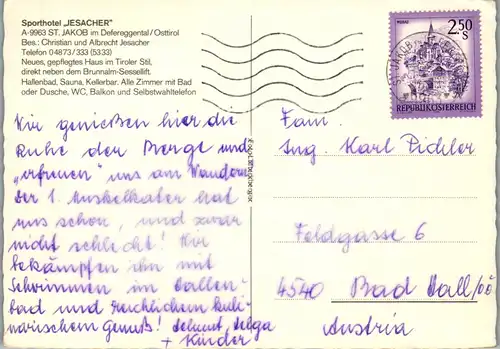 Sporthotel „JESACHER"
A-9963 ST. JAKOB im Defereggental/Osttirol
Bes.: Christian und Albrecht Jesacher
Telefon 04873/333 (5333)
Neues, gepflegtes Haus im Tiroler Stil,
direkt neben dem Brunnalm-Sessellift.
Hallenbad, Sauna, Kellerbar. Alle Zimmer mit Bad
oder Dusche, WC, Balkon und Selbstwahltelefon
Wir genießen hier die
Ruhe der Berge und
„erfreuen" uns am Wandern
der 1. Muskelkater hat
uns schon, und zwar
nicht schlecht! Wir
bekämpfen ihn mit
Schwimmen im Hallen-
bad und reichlichem kuli-
narischem Genuß! Helmut, Helga
+ Kinder
MURAU
2.50
S
REPUBLIK ÖSTERREICH
ST. JAKOB
Fam.
Ing. Karl Pichler
Feldgasse 6
4540 Bad Hall/OÖ
Austria